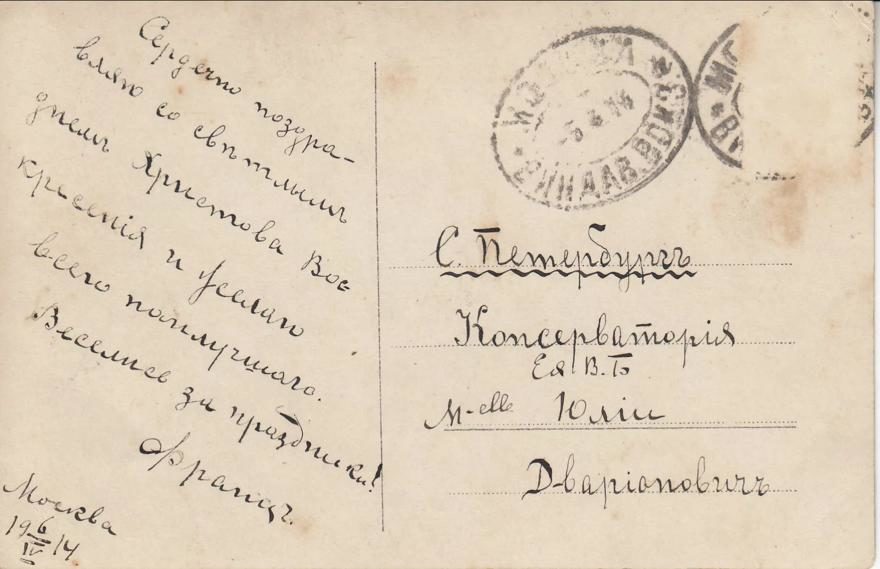 Сердечно поздра-
вляю со свѣтлымъ
днемъ Христова Вос=
кресенія и желаю
всего наилучшаго.
Веселись за праздники!
Францъ.
Москва
19 6/IV 14
МОСКВА
-6 4 14
ВИНДАВ. ВОКЗ.
С. Петербургъ
Консерваторія
Ея В.Б
M-elle Юліи
Дваріоновичъ